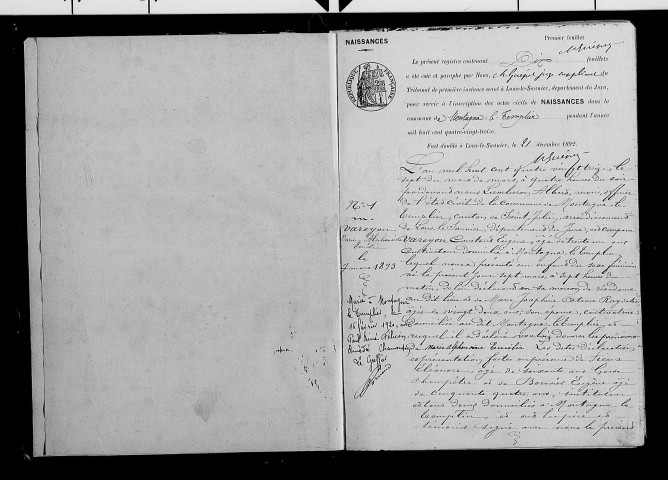 NAISSANCES
Premier feuillet
Le présent registre contenant Dix feuillets
a été coté et paraphé par Nous, juge suppléant du
Tribunal de première instance séant à Lons-le-Saunier, département du Jura,
pour servir à l'inscription des actes civils de NAISSANCES dans la
commune de Montagna le Templier pendant l'année
mil huit cent quatre-vingt-treize.
Fait double à Lons-le-Saunier, le 21 décembre 1892.
RÉPUBLIQUE FRANÇAISE
N° 1
Varoyon
Marie
le
7 mars 1893
Marié à Montagna
le Templier, le
16 février 1920, avec
Paul René
Le Greffier
L'an mil huit cent quatre vingt treize, le
sept du mois de mars, à quatre heures du soir
pardevant nous Albert, maire, officier
de l'état civil de la commune de Montagna le
Templier, canton de Saint Julien, arrondissement
de Lons le Saunier, département du Jura, est comparu
Varoyon Constant Eugène, âgé de trente un ans
cultivateur domicilié à Montagna le Templier,
lequel nous a présenté un enfant du sexe féminin
né le présent jour sept mars, à sept heures du
matin, de lui déclarant en sa maison de résidence
au dit lieu et de Marie Joséphine
âgée de vingt deux ans, son épouse, cultivatrice
domiciliée au dit Montagna le Templier, et
auquel il a déclaré vouloir donner les prénoms
de Marie
présentation faites en présence de
âgé de soixante ans Garde
champêtre et de Eugène âgé
de cinquante quatre ans, instituteur
tous deux domiciliés à Montagna le
Templier, et ont le père et
témoins signé avec nous le présent